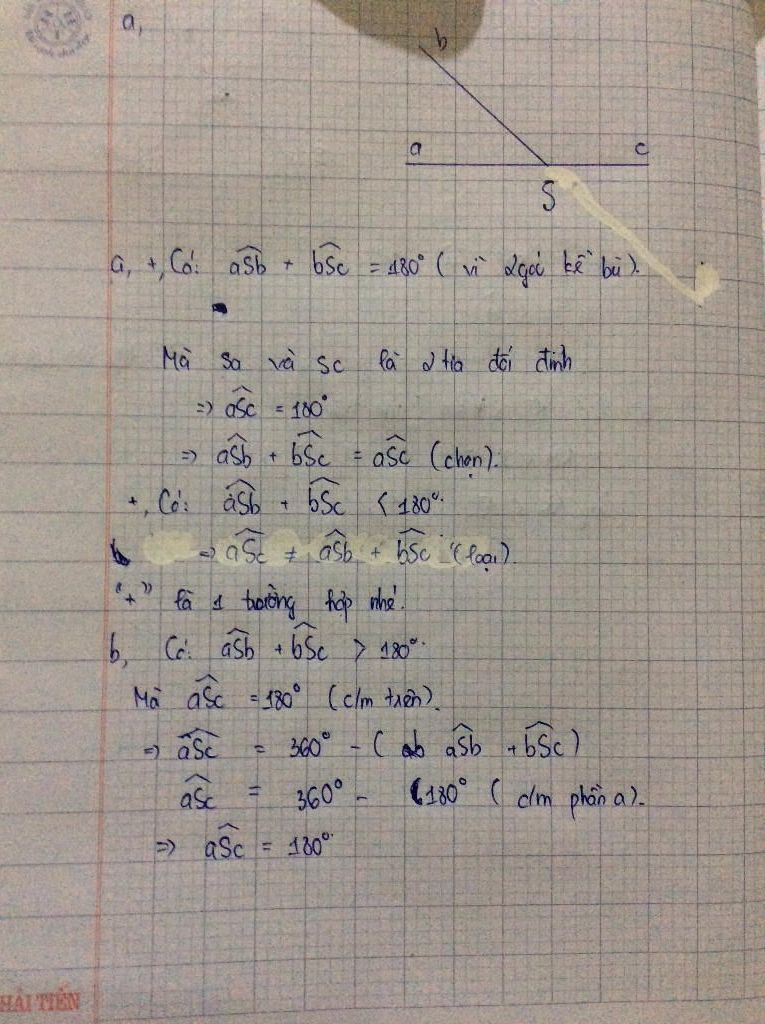 a,
b
a c
S
a, +, Có: aSb + bSc = 180° ( vì 2 góc kề bù ).
Mà Sa và Sc là 2 tia đối đỉnh
=> aSc = 180°
=> aSb + bSc = aSc (chọn).
+, Có: aSb + bSc < 180°.
=> aSc ≠ aSb + bSc (loại).
"+" là 1 trường hợp nhé.
b, Có: aSb + bSc > 180°.
Mà aSc = 180° (c/m trên).
=> aSc = 360° - ( aSb + bSc )
aSc = 360° - 180° ( c/m phần a).
=> aSc = 180°.
HẢI TIẾN